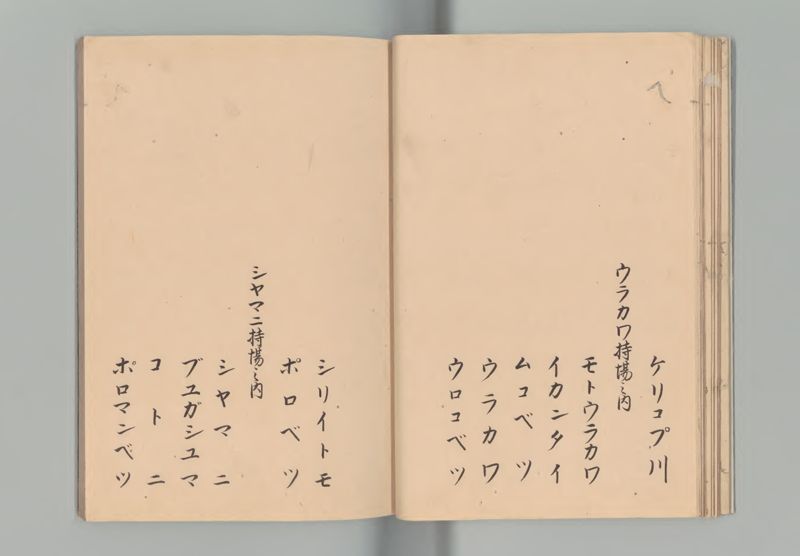 ケリコプ川
ウラカワ持場之内
モトウラカワ
イカンタイ
ムコベツ
ウラカワ
ウロコベツ
シリイトモ
ポロベツ
シヤマニ持場之内
シヤマニ
ブユガシユマ
コトニ
ポロマンベツ